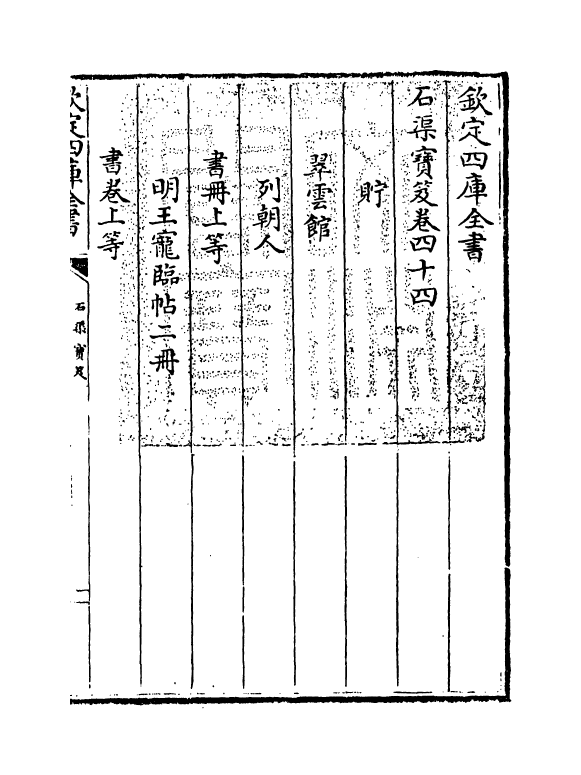 欽定四庫全書
石渠寶笈卷四十四
貯
翠雲館
列朝人
書冊上等
明王寵臨帖二冊
書卷上等
欽定四庫全書
石渠寶笈
一